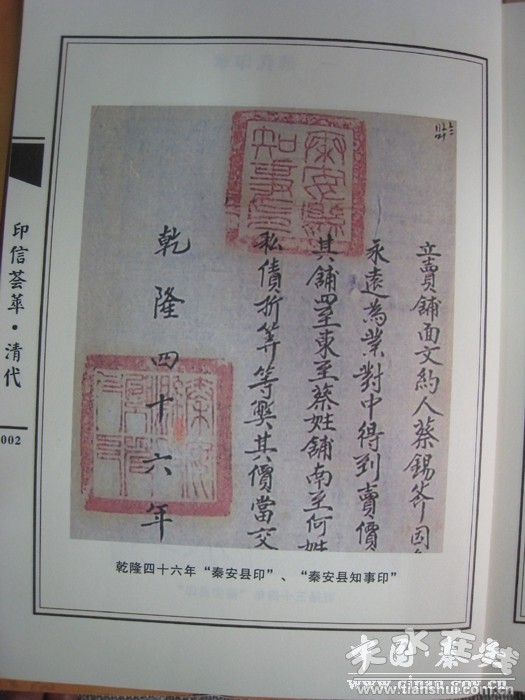 立賣舖面文約人蔡錫
永遠為業對中得到賣價
其舖四至東至蔡姓舖南至何姓
私債折筭等獘其價當交
乾隆四十六年
秦安縣知事印
秦安縣印
乾隆四十六年“秦安县印”、“秦安县知事印”
印信荟萃·清代
002
www.tianshui.com.cn
www.qinan.gov.cn